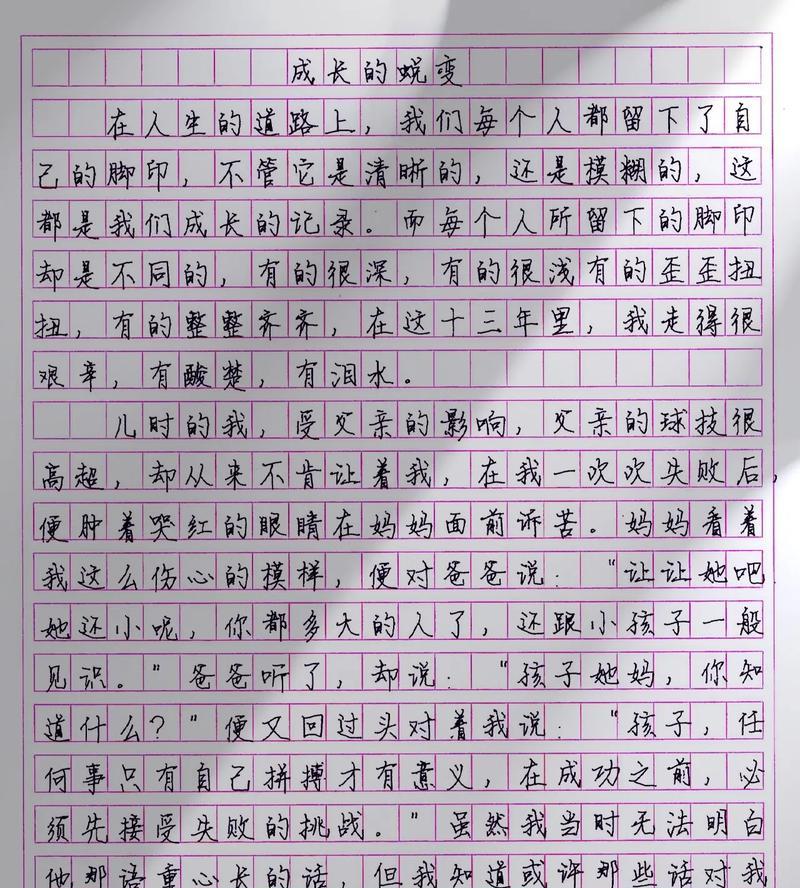 成长的蜕变
在人生的道路上，我们每个人都留下了自
己的脚印，不管它是清晰的，还是模糊的，这
都是我们成长的记录。而每个人所留下的脚印
却是不同的，有的很深，有的很浅有的歪歪扭
扭，有的整整齐齐，在这十三年里，我走得很
艰辛，有酸楚，有泪水。
儿时的我，受父亲的影响，父亲的球技很
高超，却从来不肯让着我，在我一次次失败后，
便肿着哭红的眼睛在妈妈面前诉苦。妈妈看着
我这么伤心的模样，便对爸爸说：“让让她吧
她还小呢，你都多大的人了，还跟小孩子一般
见识。”爸爸听了，却说：“孩子她妈，你知
道什么？”便又回过头对着我说：“孩子，任
何事只有自己拼搏才有意义，在成功之前，必
须先接受失败的挑战。”虽然我当时无法明白
他那语重心长的话，但我知道或许那些话对我